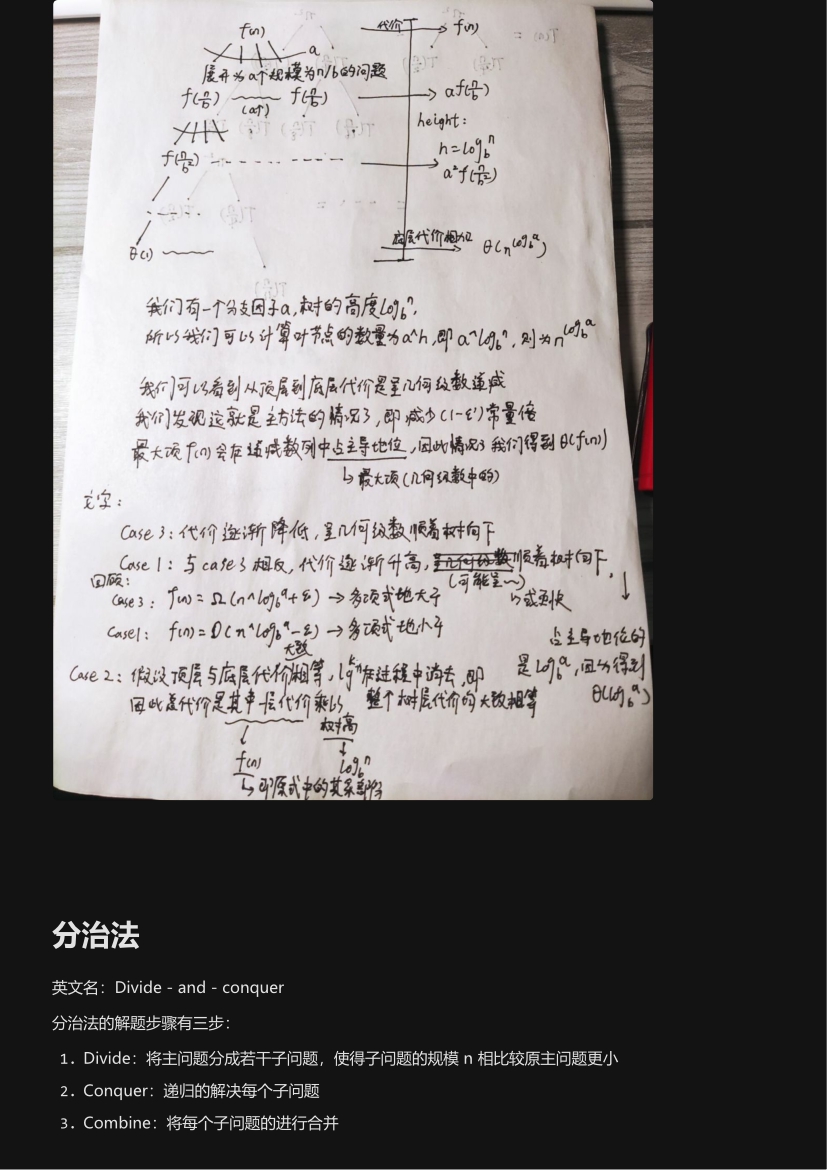 f(n) 代价 f(n)
a
展开为a个规模为n/b的问题
f(n/b) f(n/b) af(n/b)
(a个)
height:
h=log_b^n
f(n/b²) a²f(n/b²)
底层代价相加
θ(1) θ(n^log_b^a)
我们有一个分支因子a,树的高度log_b^n,
所以我们可以计算叶节点的数量为a^h,即a^log_b^n,则为n^log_b^a
我们可以看到从顶层到底层代价是呈几何级数递减
我们发现这就是主方法的情况3,即减少(1-ε')常量倍
最大项f(n)会在递减数列中占主导地位,因此情况3我们得到θ(f(n))
↳最大项(几何级数中的)
文字:
Case 3:代价逐渐降低,呈几何级数顺着树向下
Case 1:与case3相反,代价逐渐升高,呈几何级数顺着树向下,
(可能呈~) ↳或更快
回顾:
Case3: f(n)=Ω(n^log_b^a+ε)→多项式地大于
Case1: f(n)=O(n^log_b^a-ε)→多项式地小于
占主导地位的
是log_b^a,因为得到
θ(log_b^a)
大致
Case 2:假设顶层与底层代价相等,lg^k n在过程中消去,即
因此总代价是其中一层代价乘以 整个树层代价的大致相等
树高
f(n) log_b^n
↳即原式中的其系部分
分治法
英文名：Divide - and - conquer
分治法的解题步骤有三步：
1. Divide：将主问题分成若干子问题，使得子问题的规模 n 相比较原主问题更小
2. Conquer：递归的解决每个子问题
3. Combine：将每个子问题的进行合并